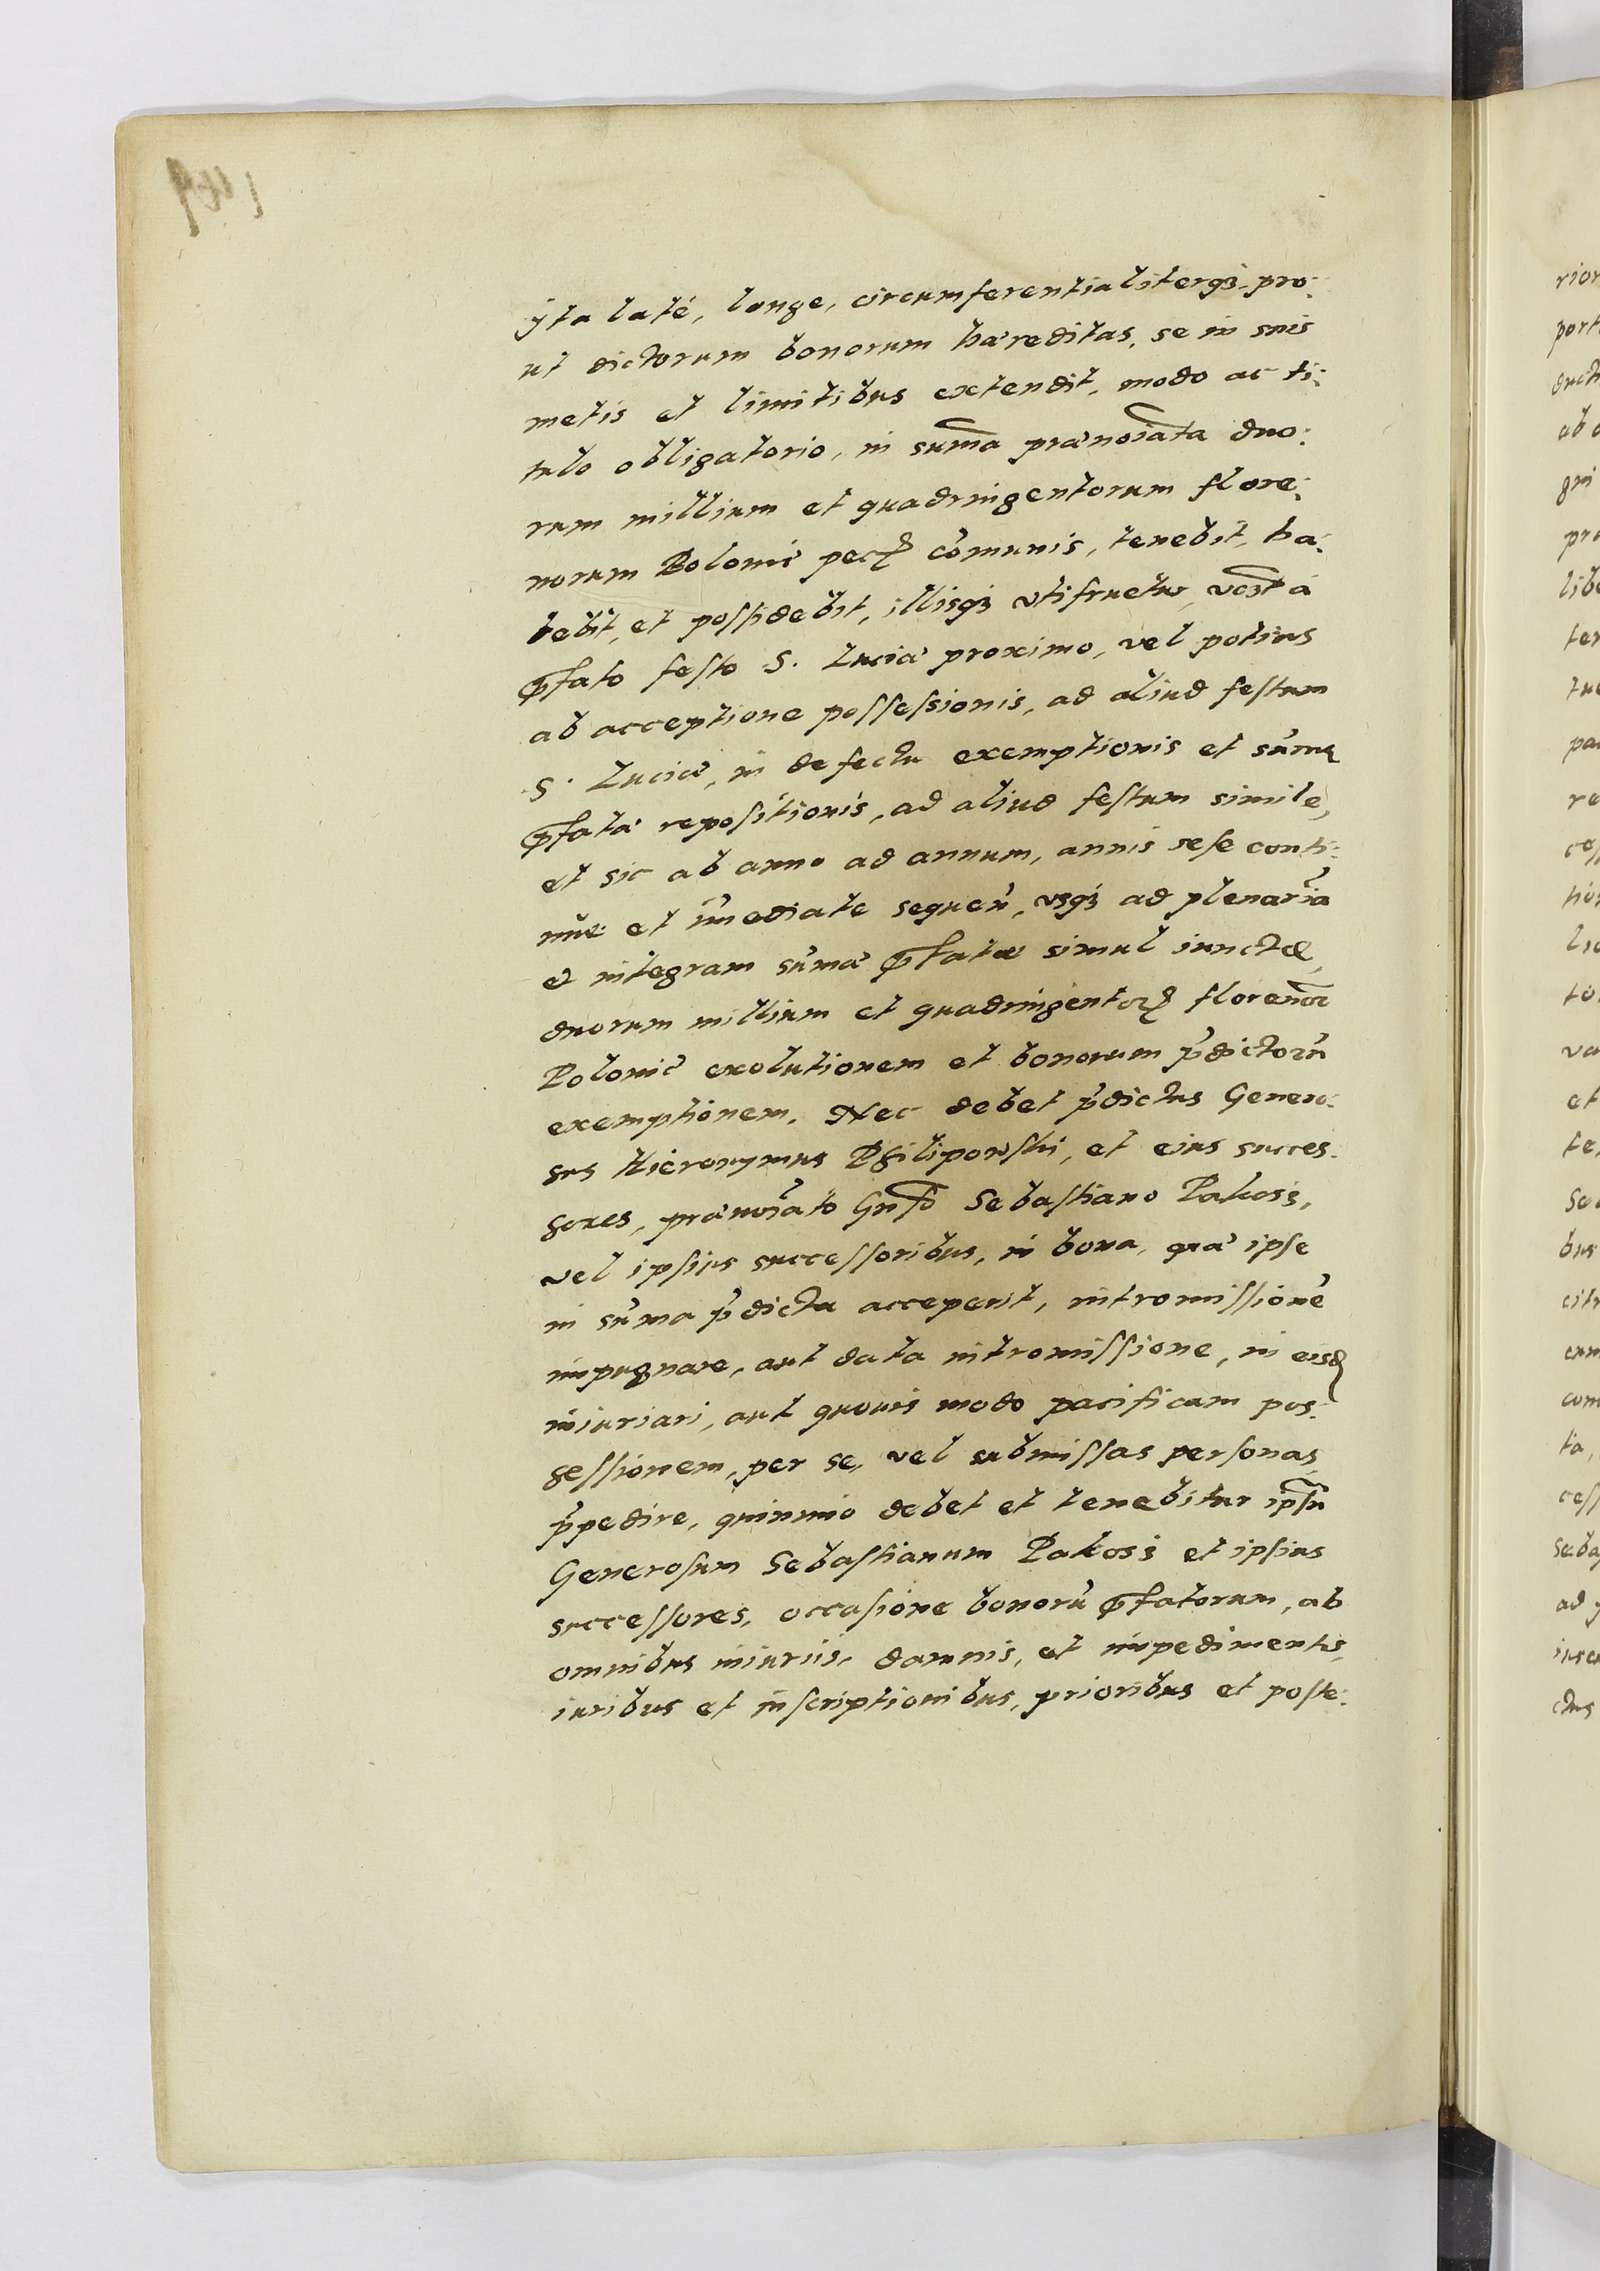 ÿta laté, longe, circumferentialiterqꝫ, pro:
ut dictorum bonorum hæreditas, se in suis
metis et limitibus extendit, modo ac ti:
tulo obligatorio, in sum̃a prænoĩata duo:
rum millium et quadringentorum flore:
norum Polonic̃ pecꝝ com̃unis, tenebit, ha:
bebit, et possidebit, illisqꝫ utifruetur,
p̃fato festo S. Luciæ proximo, vel potius
ab acceptione possessionis, ad aliud festum
S. Luciæ, in defectu exemptionis et sum̃æ
p̃fatæ repositionis, ad aliud festum simile,
et sic ab anno ad annum, annis sese conti:
nue et im̃ediate sequeñ, usqꝫ ad plenariã
et integram sum̃æ p̃fatæ simul iunctæ,
duorum millium et quadringentoꝝ florenoꝝ
Polonic̃ exolutionem et bonorum p̃dictorũ
exemptionem. Nec debet p̃dictus Genero:
sus Hieronymus Philipowski, et eius succes:
sores, prænoĩato Gñso Sebastiano Pakosz,
vel ipsius successoribus, in bona, quæ ipse
in sum̃a p̃dicta acceperit, intromissionẽ
impugnare, aut data intromissione, in eisdꝫ
iniuriari, aut quovis modo pacificam pos:
sessionem, per se, vel submissas personas,
p̃pedire, quinimio debet et tenebitur ipsũ
Generosum Sebastianum Pakosz et ipsius
successores, occasione bonorũ p̃fatorum, ab
omnibus iniuriis, damnis, et impedimentis,
iuribus et inscriptionibus, prioribus et poste: